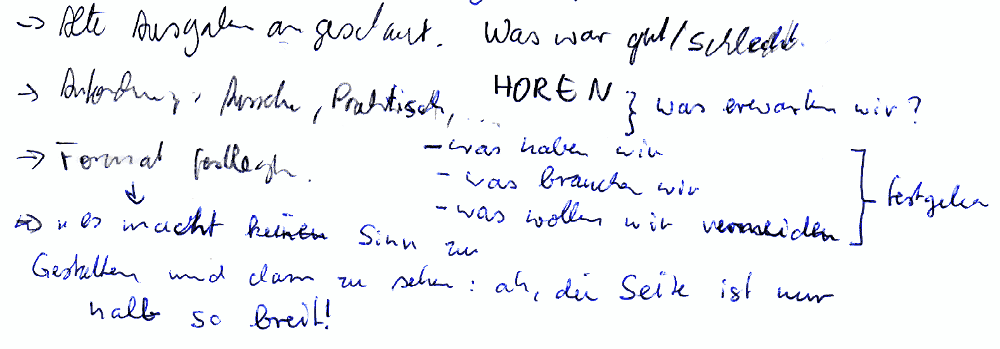 → Alte Ausgaben angeschaut. Was war gut/schlecht.
→ Anforderung: Ansehen, Praktisch, ... HOREN } was erwarten wir?
→ Format festlegen.
- was haben wir
- was brauchen wir
- was wollen wir vermeiden
] festgelegen
↓
⇒ "es macht keinen Sinn zu
Gestalten und dann zu sehen: ah, die Seite ist nur
halb so breit!